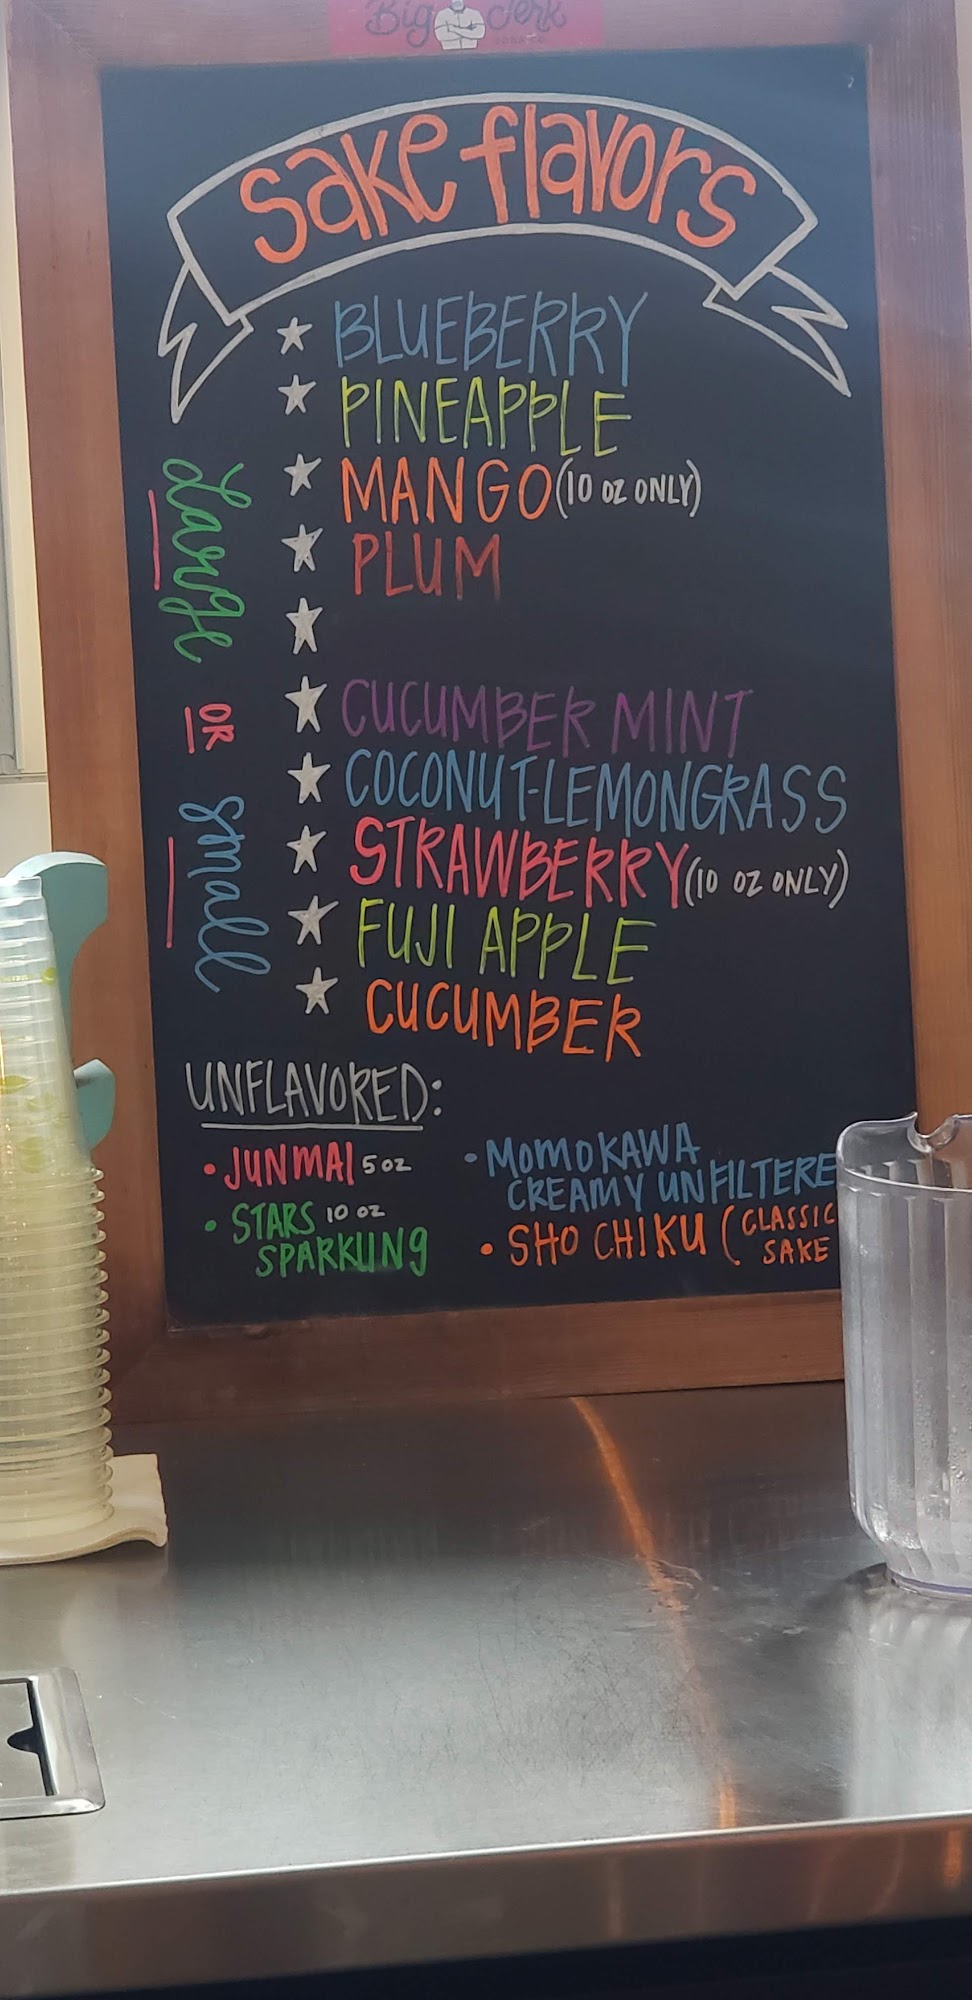 Big Jerk
sake flavors
BLUEBERRY
PINEAPPLE
MANGO (10 OZ ONLY)
PLUM
CUCUMBER MINT
COCONUT-LEMONGRASS
STRAWBERRY (10 OZ ONLY)
FUJI APPLE
CUCUMBER
Large OR Small
UNFLAVORED:
• JUNMAI 5 OZ
• STARS 10 OZ
SPARKLING
• MOMOKAWA
CREAMY UNFILTERE
• SHO CHIKU (CLASSIC
SAKE